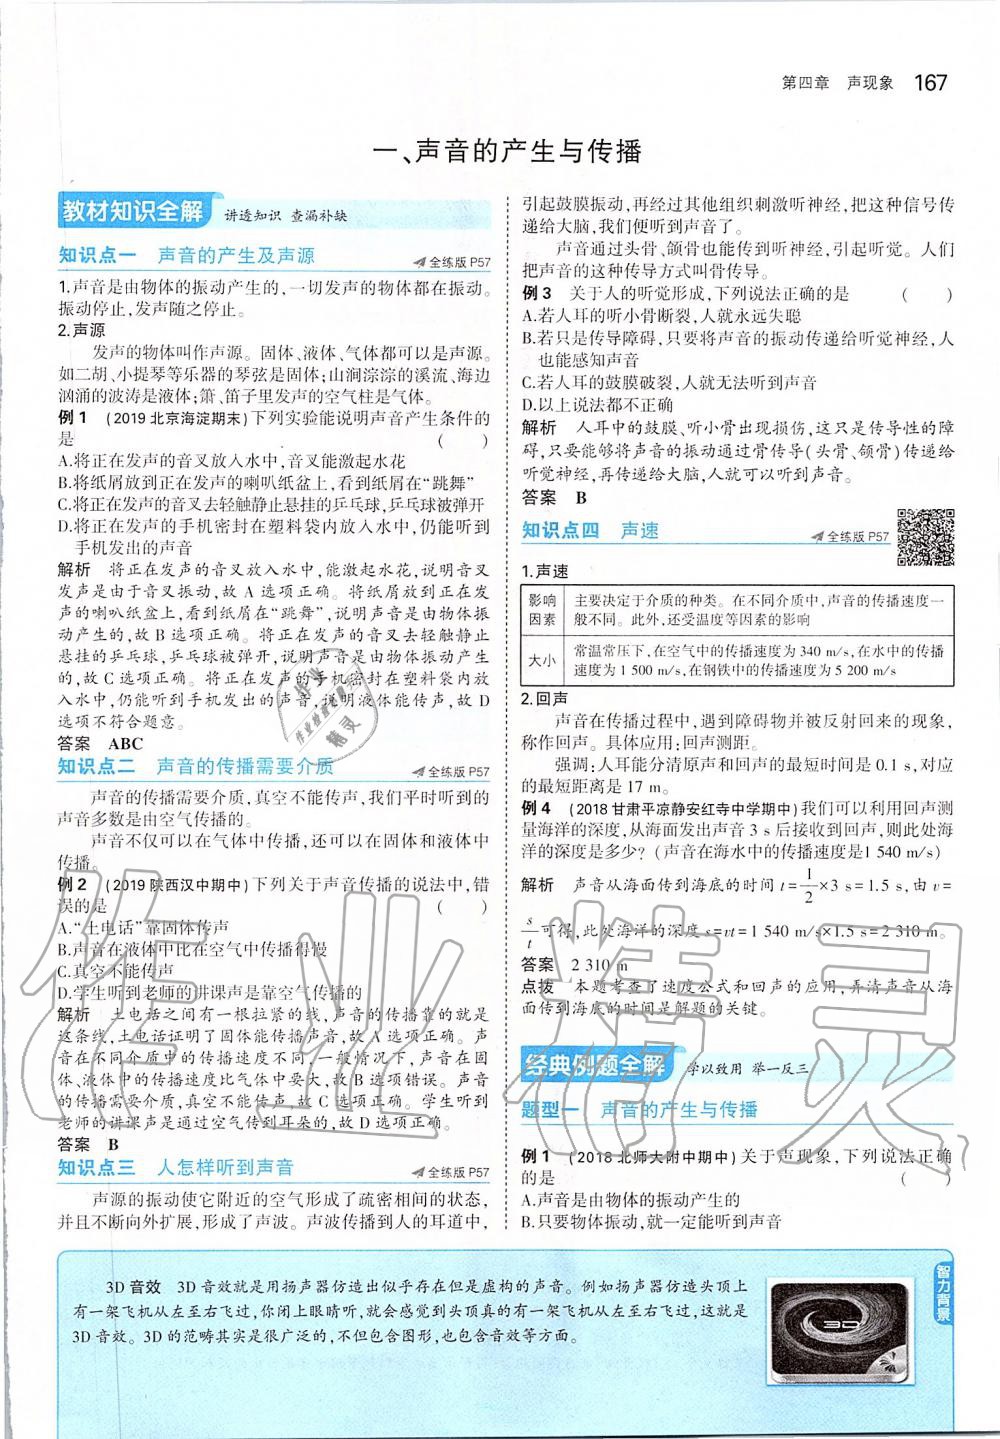 第四章 声现象 167
一、声音的产生与传播
教材知识全解 讲透知识 查漏补缺
知识点一 声音的产生及声源 全练版 P57
1.声音是由物体的振动产生的,一切发声的物体都在振动。
振动停止,发声随之停止。
2.声源
发声的物体叫作声源。固体、液体、气体都可以是声源。
如二胡、小提琴等乐器的琴弦是固体;山涧淙淙的溪流、海边
汹涌的波涛是液体;箫、笛子里发声的空气柱是气体。
例 1 (2019 北京海淀期末)下列实验能说明声音产生条件的
是 ( )
A.将正在发声的音叉放入水中,音叉能激起水花
B.将纸屑放到正在发声的喇叭纸盆上,看到纸屑在“跳舞”
C.将正在发声的音叉去轻触静止悬挂的乒乓球,乒乓球被弹开
D.将正在发声的手机密封在塑料袋内放入水中,仍能听到
手机发出的声音
解析 将正在发声的音叉放入水中,能激起水花,说明音叉
发声是由于音叉振动,故 A 选项正确。将纸屑放到正在发
声的喇叭纸盆上,看到纸屑在“跳舞”,说明声音是由物体振
动产生的,故 B 选项正确。将正在发声的音叉去轻触静止
悬挂的乒乓球,乒乓球被弹开,说明声音是由物体振动产生
的,故 C 选项正确。将正在发声的手机密封在塑料袋内放
入水中,仍能听到手机发出的声音,说明液体能传声,故 D
选项不符合题意。
答案 ABC
知识点二 声音的传播需要介质 全练版 P57
声音的传播需要介质,真空不能传声,我们平时听到的
声音多数是由空气传播的。
声音不仅可以在气体中传播,还可以在固体和液体中
传播。
例 2 (2019 陕西汉中期中)下列关于声音传播的说法中,错
误的是 ( )
A.“土电话”靠固体传声
B.声音在液体中比在空气中传播得慢
C.真空不能传声
D.学生听到老师的讲课声是靠空气传播的
解析 土电话之间有一根拉紧的线,声音的传播靠的就是
这条线,土电话证明了固体能传播声音,故 A 选项正确。声
音在不同介质中的传播速度不同,一般情况下,声音在固
体、液体中的传播速度比气体中要大,故 B 选项错误。声音
的传播需要介质,真空不能传声,故 C 选项正确。学生听到
老师的讲课声是通过空气传到耳朵的,故 D 选项正确。
答案 B
知识点三 人怎样听到声音 全练版 P57
声源的振动使它附近的空气形成了疏密相间的状态,
并且不断向外扩展,形成了声波。声波传播到人的耳道中,
引起鼓膜振动,再经过其他组织刺激听神经,把这种信号传
递给大脑,我们便听到声音了。
声音通过头骨、颌骨也能传到听神经,引起听觉。人们
把声音的这种传导方式叫骨传导。
例 3 关于人的听觉形成,下列说法正确的是 ( )
A.若人耳的听小骨断裂,人就永远失聪
B.若只是传导障碍,只要将声音的振动传递给听觉神经,人
也能感知声音
C.若人耳的鼓膜破裂,人就无法听到声音
D.以上说法都不正确
解析 人耳中的鼓膜、听小骨出现损伤,这只是传导性的障
碍,只要能够将声音的振动通过骨传导(头骨、颌骨)传递给
听觉神经,再传递给大脑,人就可以听到声音。
答案 B
知识点四 声速 全练版 P57
1.声速
影响因素 主要决定于介质的种类。在不同介质中,声音的传播速度一
般不同。此外,还受温度等因素的影响
大小 常温常压下,在空气中的传播速度为 340 m/s,在水中的传播
速度为 1 500 m/s,在钢铁中的传播速度为 5 200 m/s
2.回声
声音在传播过程中,遇到障碍物并被反射回来的现象,
称作回声。具体应用:回声测距。
强调:人耳能分清原声和回声的时间是 0.1 s,对应
的最短距离是 17 m。
例 4 (2018 甘肃平凉静安红寺中学期中)我们可以利用回声测
量海洋的深度,从海面发出声音 3 s后接收到回声,则此处海
洋的深度是多少?(声音在海水中的传播速度是1 540 m/s)
解析 声音从海面传到海底的时间 t=1/2×3 s=1.5 s,由 v=
s/t可得,此处海洋的深度 s=vt=1 540 m/s×1.5 s=2 310 m。
答案 2 310 m
点拨 本题考查了速度公式和回声的应用,弄清声音从海
面传到海底的时间是解题的关键。
经典例题全解 学以致用 举一反三
题型一 声音的产生与传播
例 1 (2018 北师大附中期中)关于声现象,下列说法正确
的是 ( )
A.声音是由物体的振动产生的
B.只要物体振动,就一定能听到声音
3D 音效 3D 音效就是用扬声器仿造出似乎存在但是虚构的声音。例如扬声器仿造头顶上
有一架飞机从左至右飞过,你闭上眼睛听,就会感觉到头顶真的有一架飞机从左至右飞过,这就是
3D 音效。3D 的范畴其实是很广泛的,不但包含图形,也包含音效等方面。
智力背景
3D
作业精灵